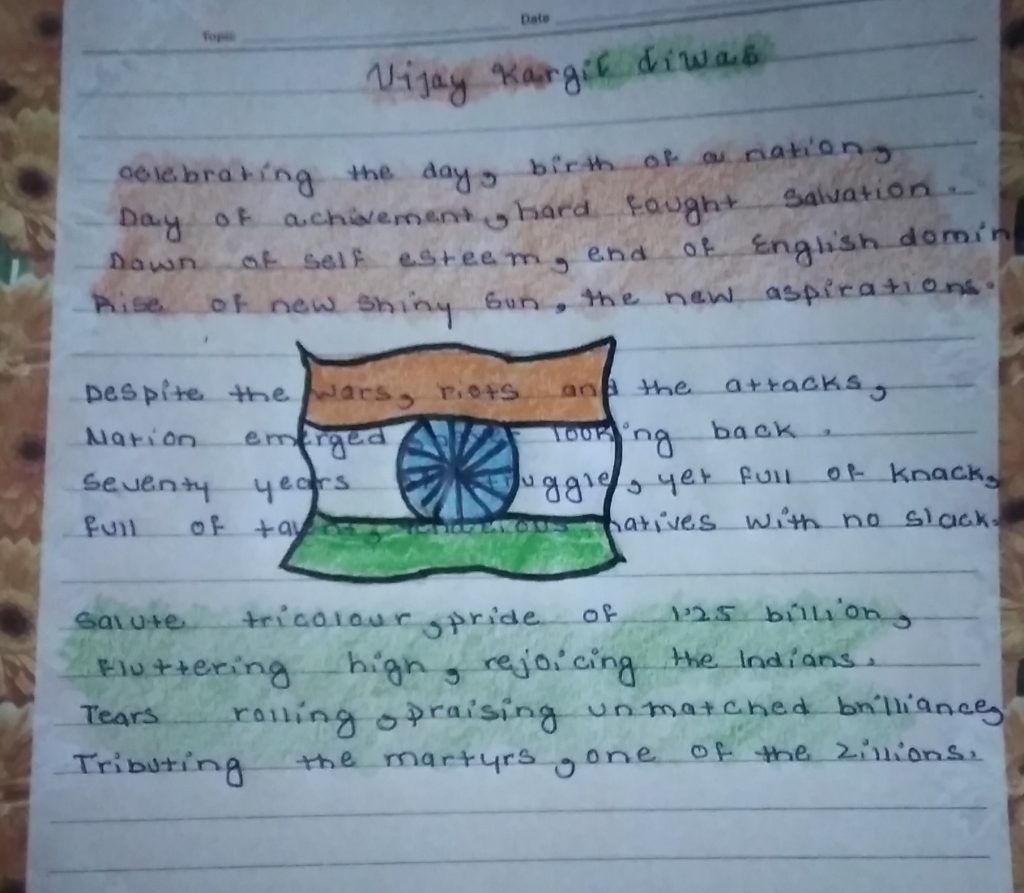 Topic
Date
Vijay Kargil diwas
Celebrating the day, birth of a nation,
Day of achivement, hard fought salvation.
Dawn of self esteem, end of English domin
Rise of new shiny sun, the new aspirations.
Despite the wars, riots and the attacks,
Nation emerged looking back.
Seventy years uggle, yet full of knack,
Full of natives with no slack.
Salute tricolour, pride of 1.25 billion,
Fluttering high, rejoicing the Indians.
Tears rolling, praising unmatched brilliance,
Tributing the martyrs, one of the zillions.